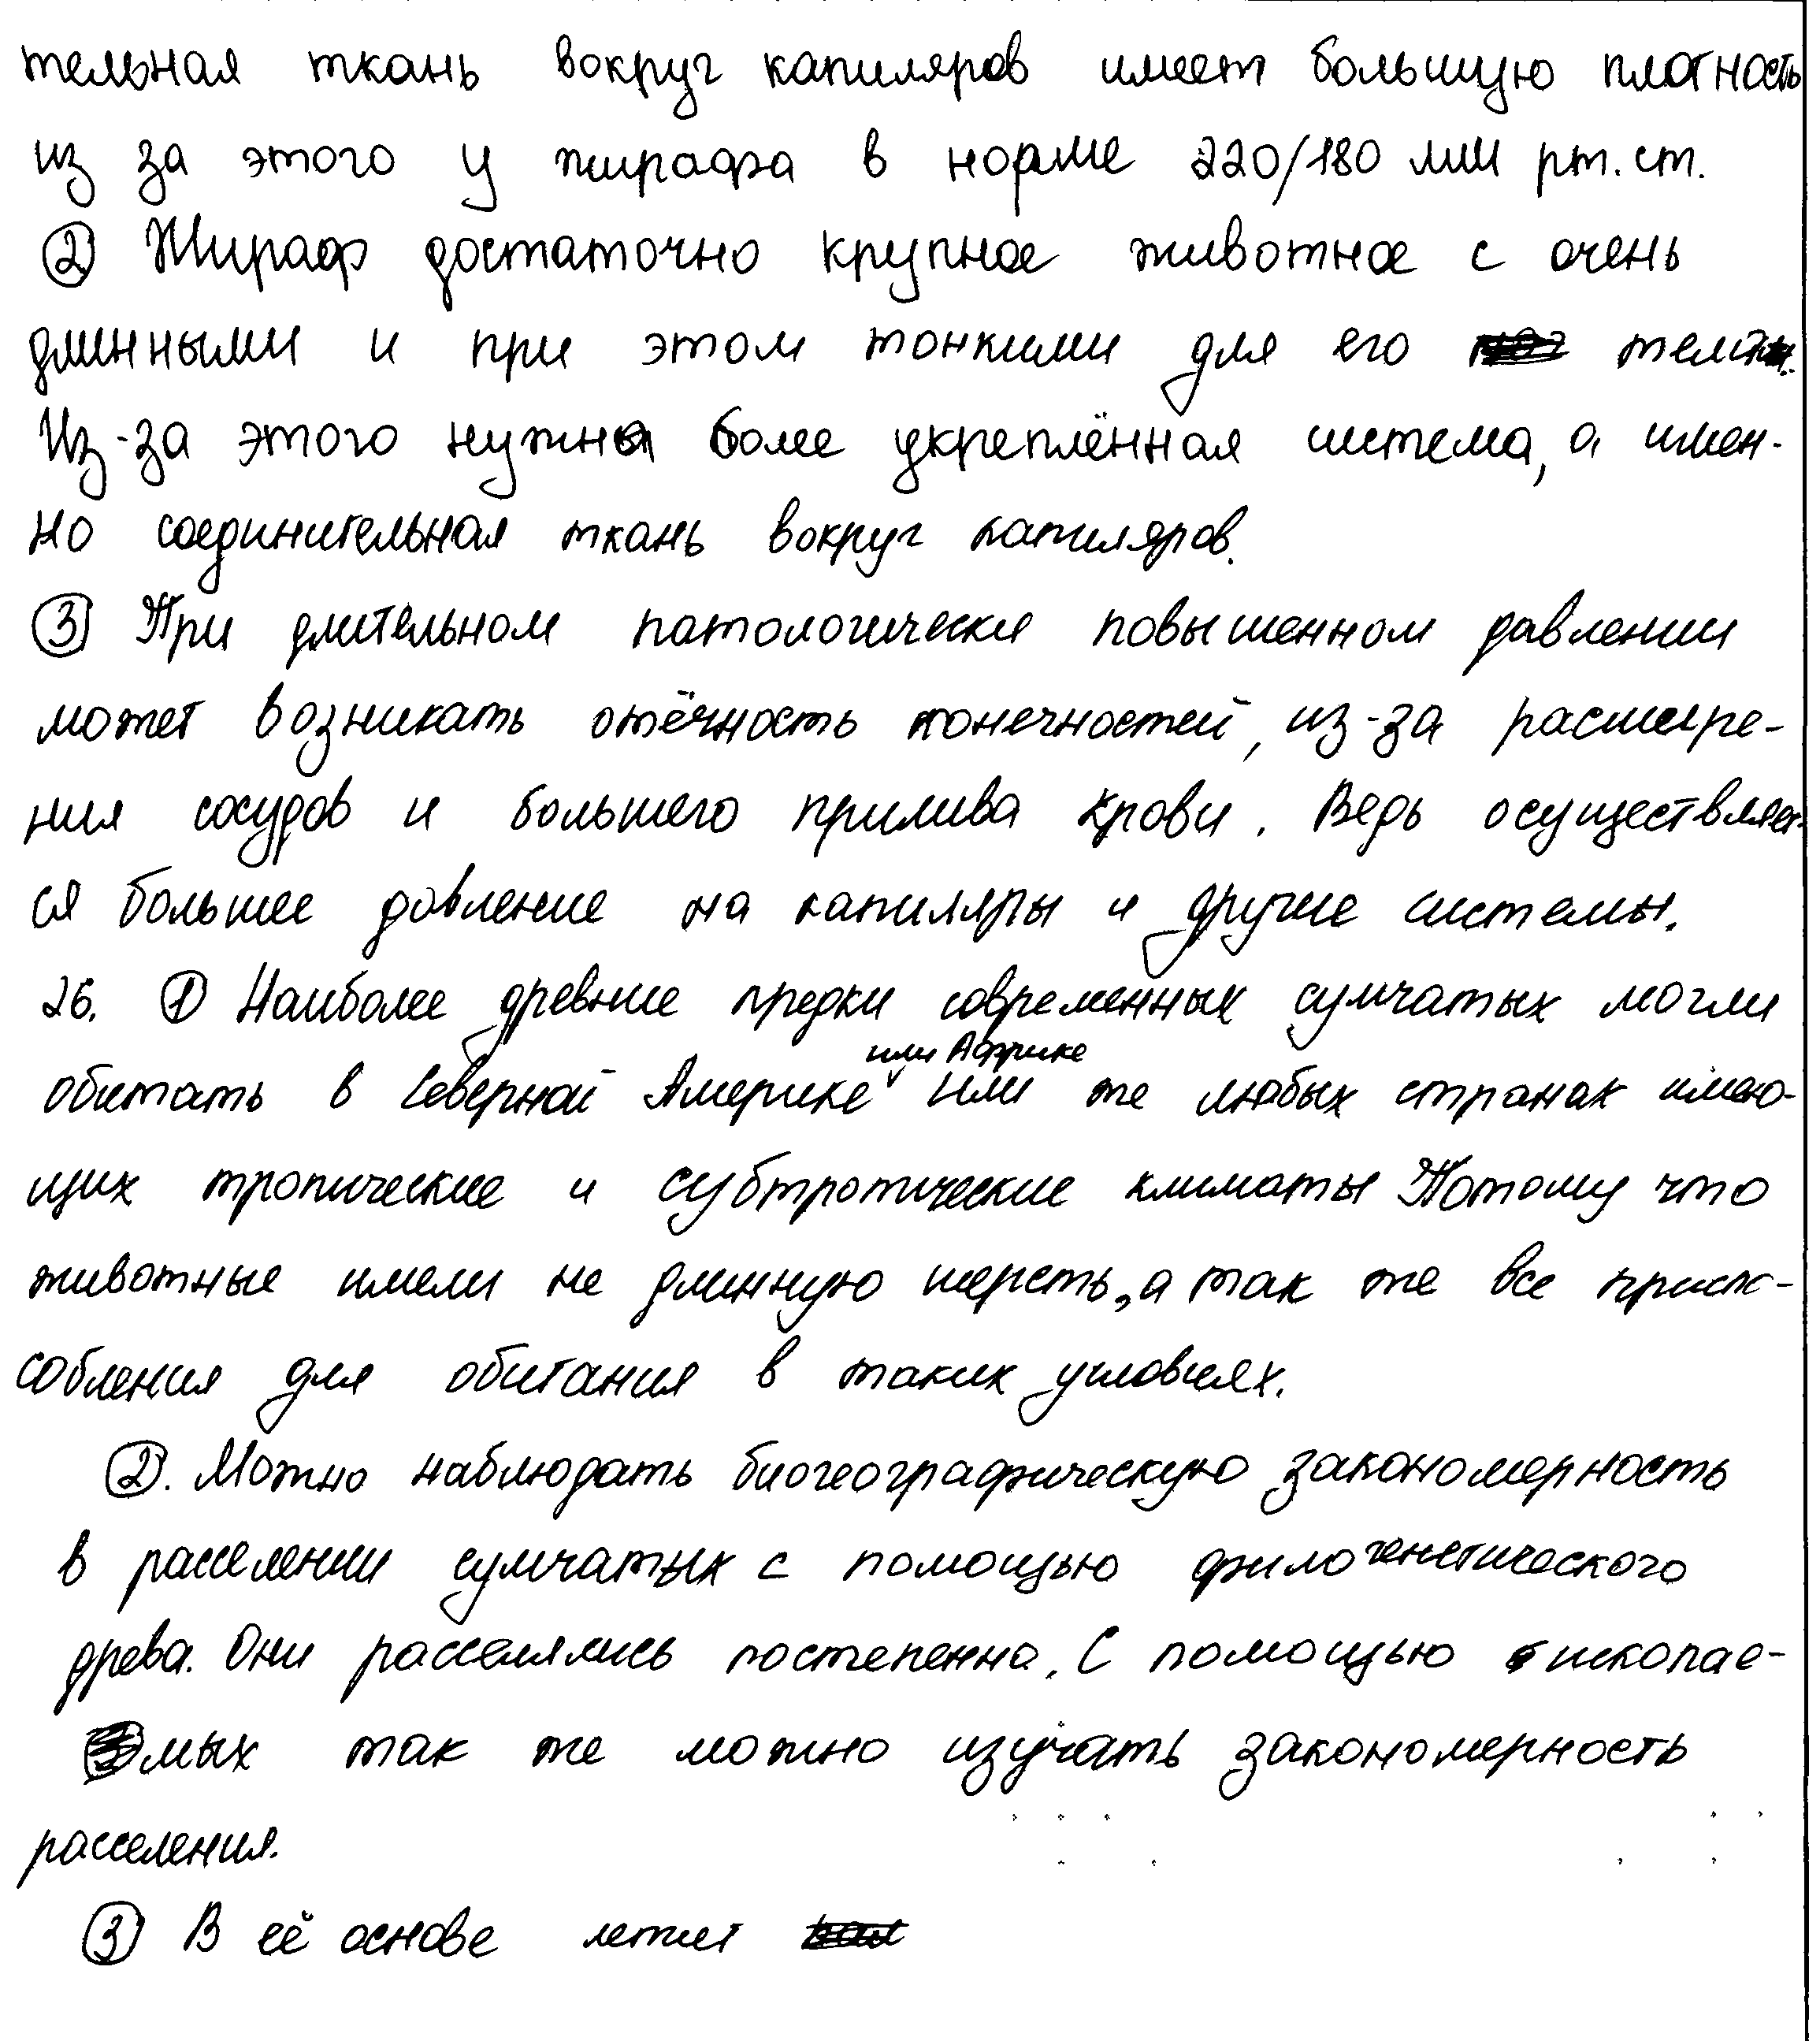 тельная ткань вокруг капиляров имеет большую плотность
из за этого у жирафа в норме 220/180 мм рт. ст.
② Жираф достаточно крупное животное с очень
длинными и при этом тонкими для его тела
Из-за этого нужна более укреплённая система, а имен-
но соединительная ткань вокруг капиляров.
③ При длительном патологически повышенном давлении
может возникать отёчность конечностей, из-за расшире-
ния сосудов и большего прилива крови. Ведь осуществляет-
ся большее давление на капиляры и другие системы.
26. ① Наиболее древние предки современных сумчатых могли
обитать в Северной Америке или Африке или же любых странах имею-
щих тропические и субтропические климаты Потому что
животные имели не длинную шерсть, а так же все приспо-
собления для обитания в таких условиях.
②. Можно наблюдать биогеографическую закономерность
в расселении сумчатых с помощью филогенетического
древа. Они расселялись постепенно. С помощью ископае-
мых так же можно изучать закономерность
расселения.
③ В её основе лежит